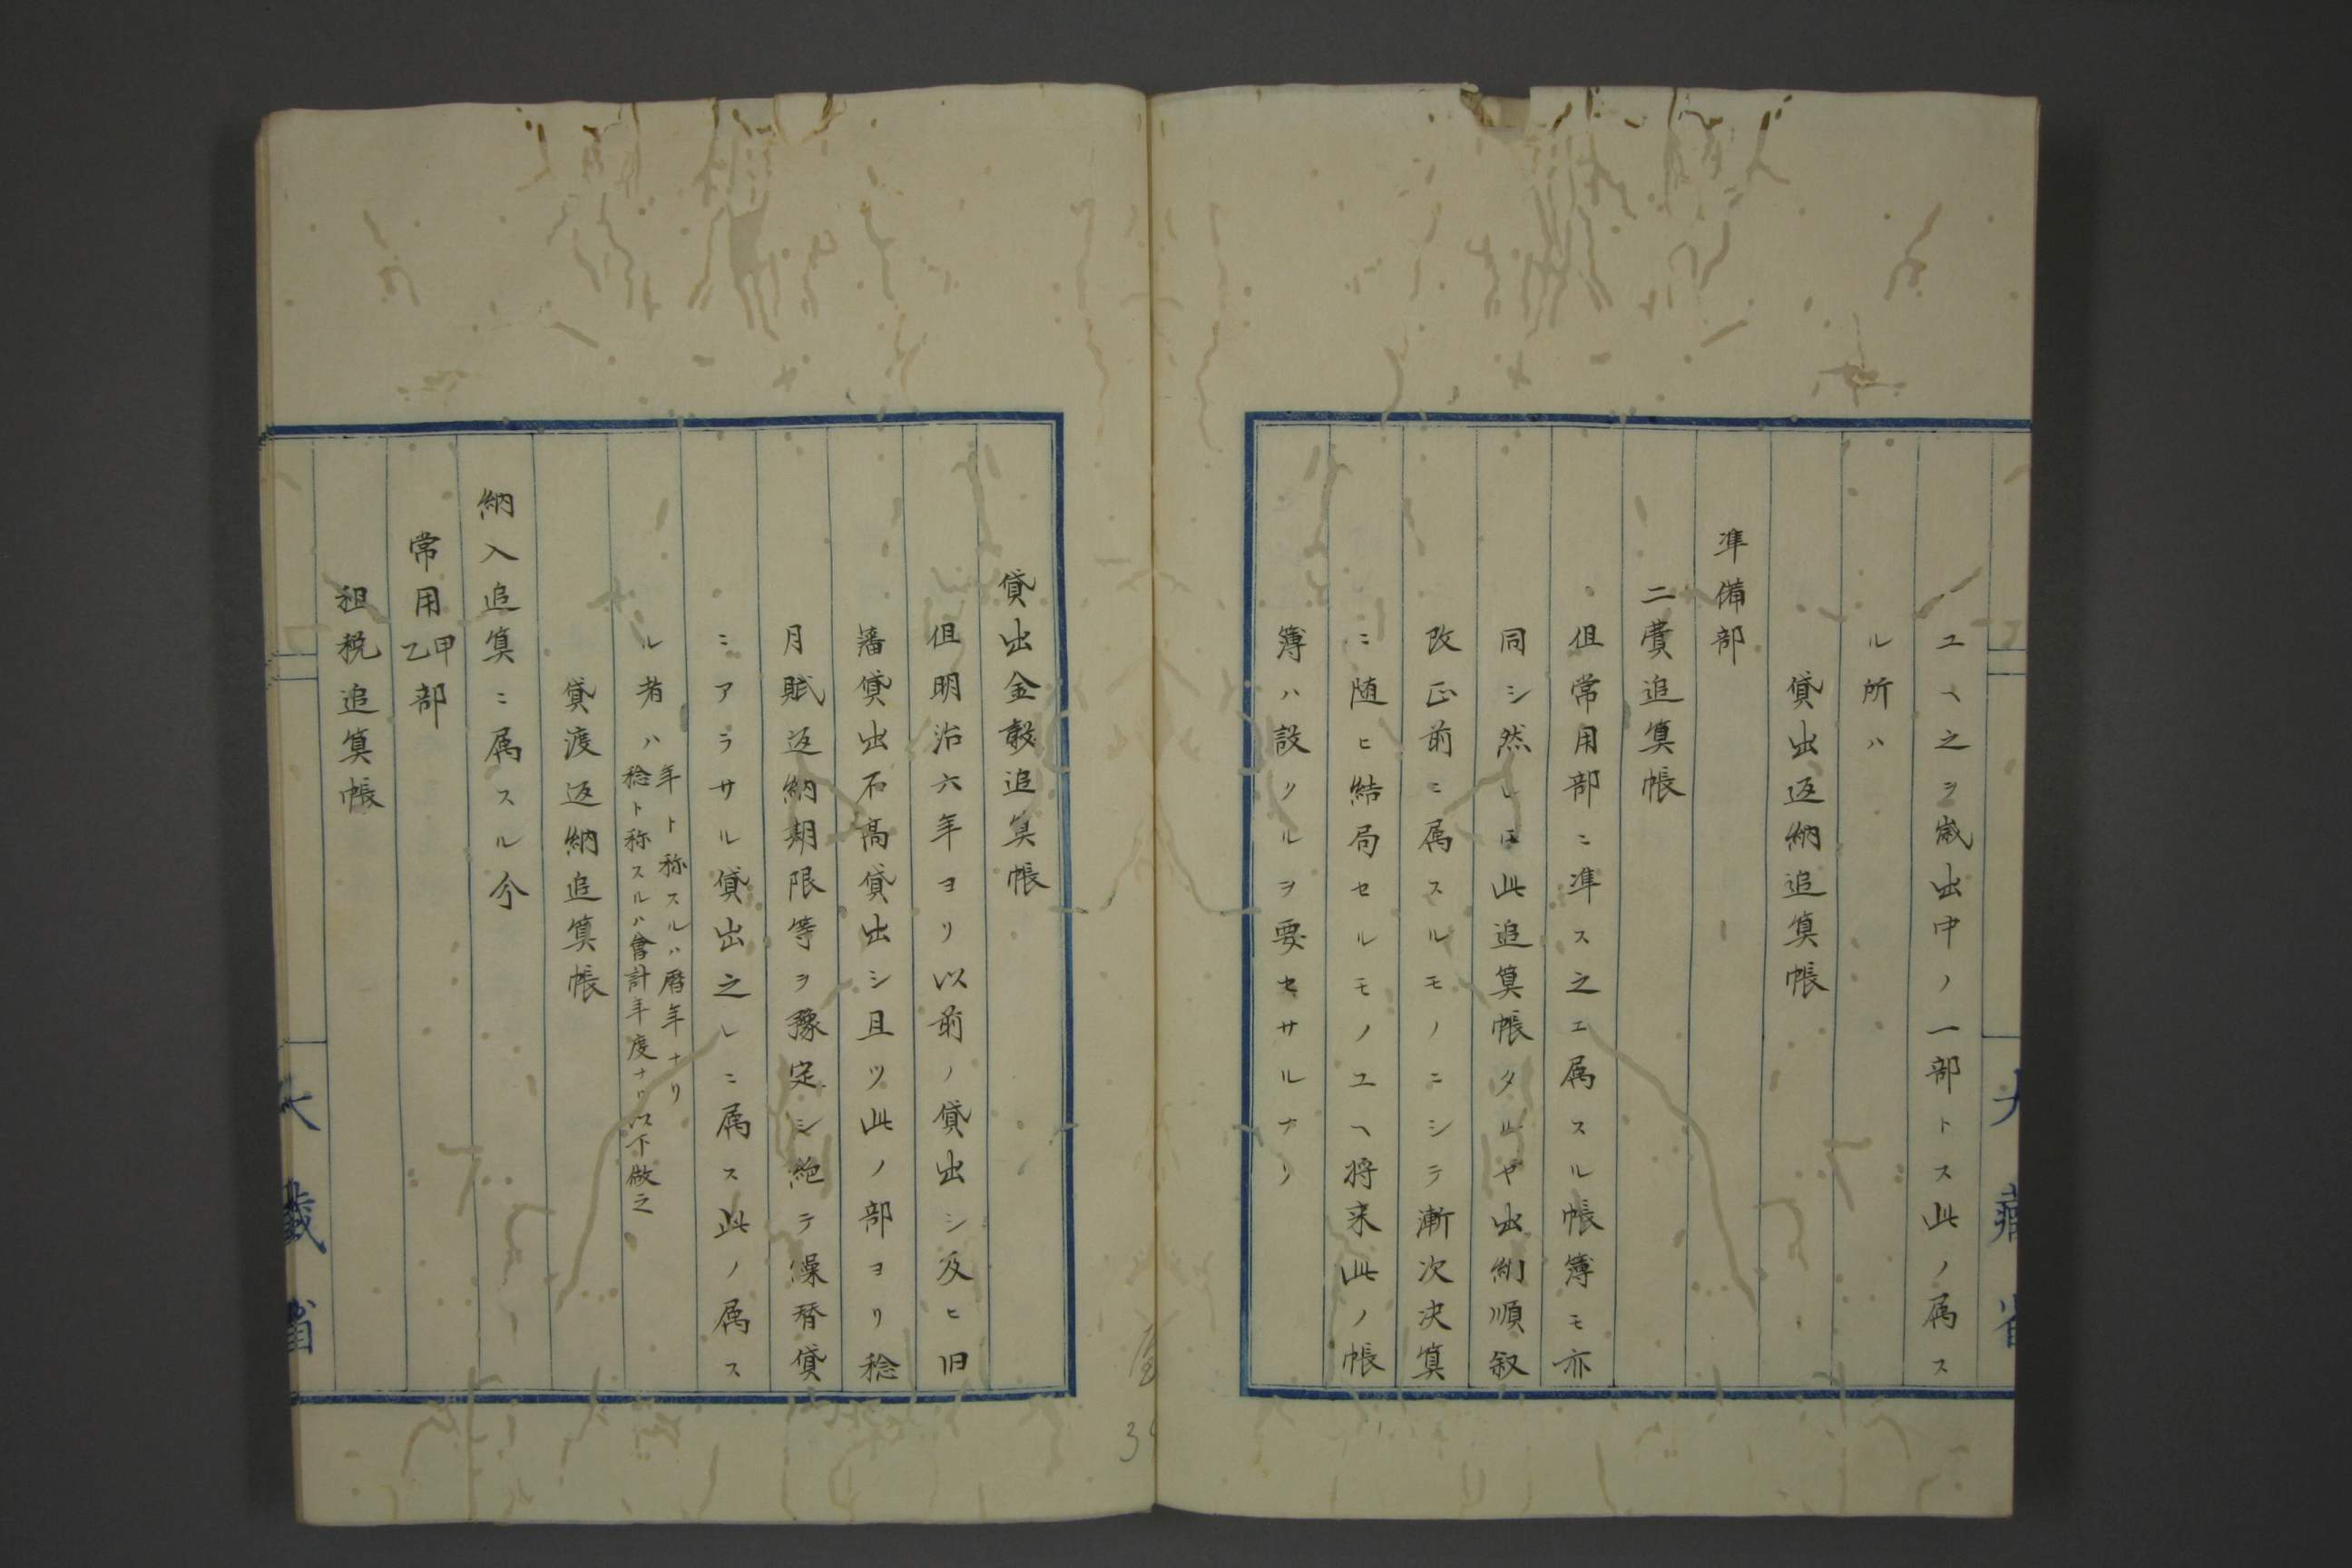 ユヘ之ヲ歳出中ノ一部トス此ノ属ス
ル所ハ
貸出返納追算帳
準備部
二費追算帳
但常用部ニ準ス之エ属スル帳簿モ亦
同シ然レ𪜈此追算帳タルヤ出納順叙
改正前ニ属スルモノニシテ漸次决算
ニ随ヒ結局セルモノユヘ将来此ノ帳
簿ハ設クルヲ要セサルナリ
貸出金穀追算帳
但明治六年ヨリ以前ノ貸出シ及ヒ旧
藩貸出石高貸出シ且ツ此ノ部ヨリ稔
月賦返納期限等ヲ豫定シ絶テ繰替貸
ニアラサル貸出之レニ属ス此ノ属ス
ル者ハ
年ト称スルハ暦年ナリ
稔ト称スルハ會計年度ナリ以下倣之
貸渡返納追算帳
納入追算ニ属スル分
常用甲乙部
租税追算帳
大藏省